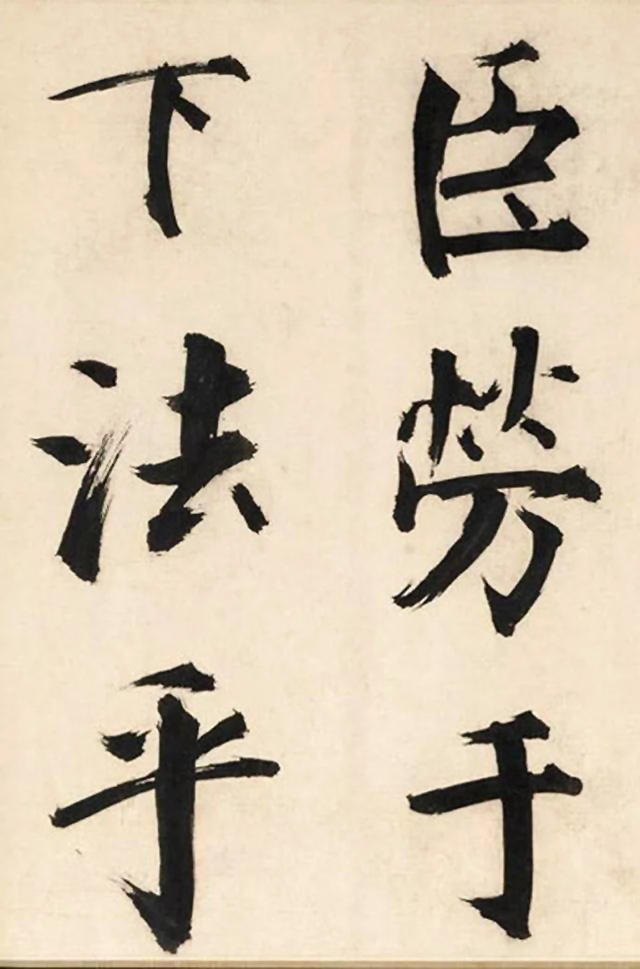 臣勞于
下法乎